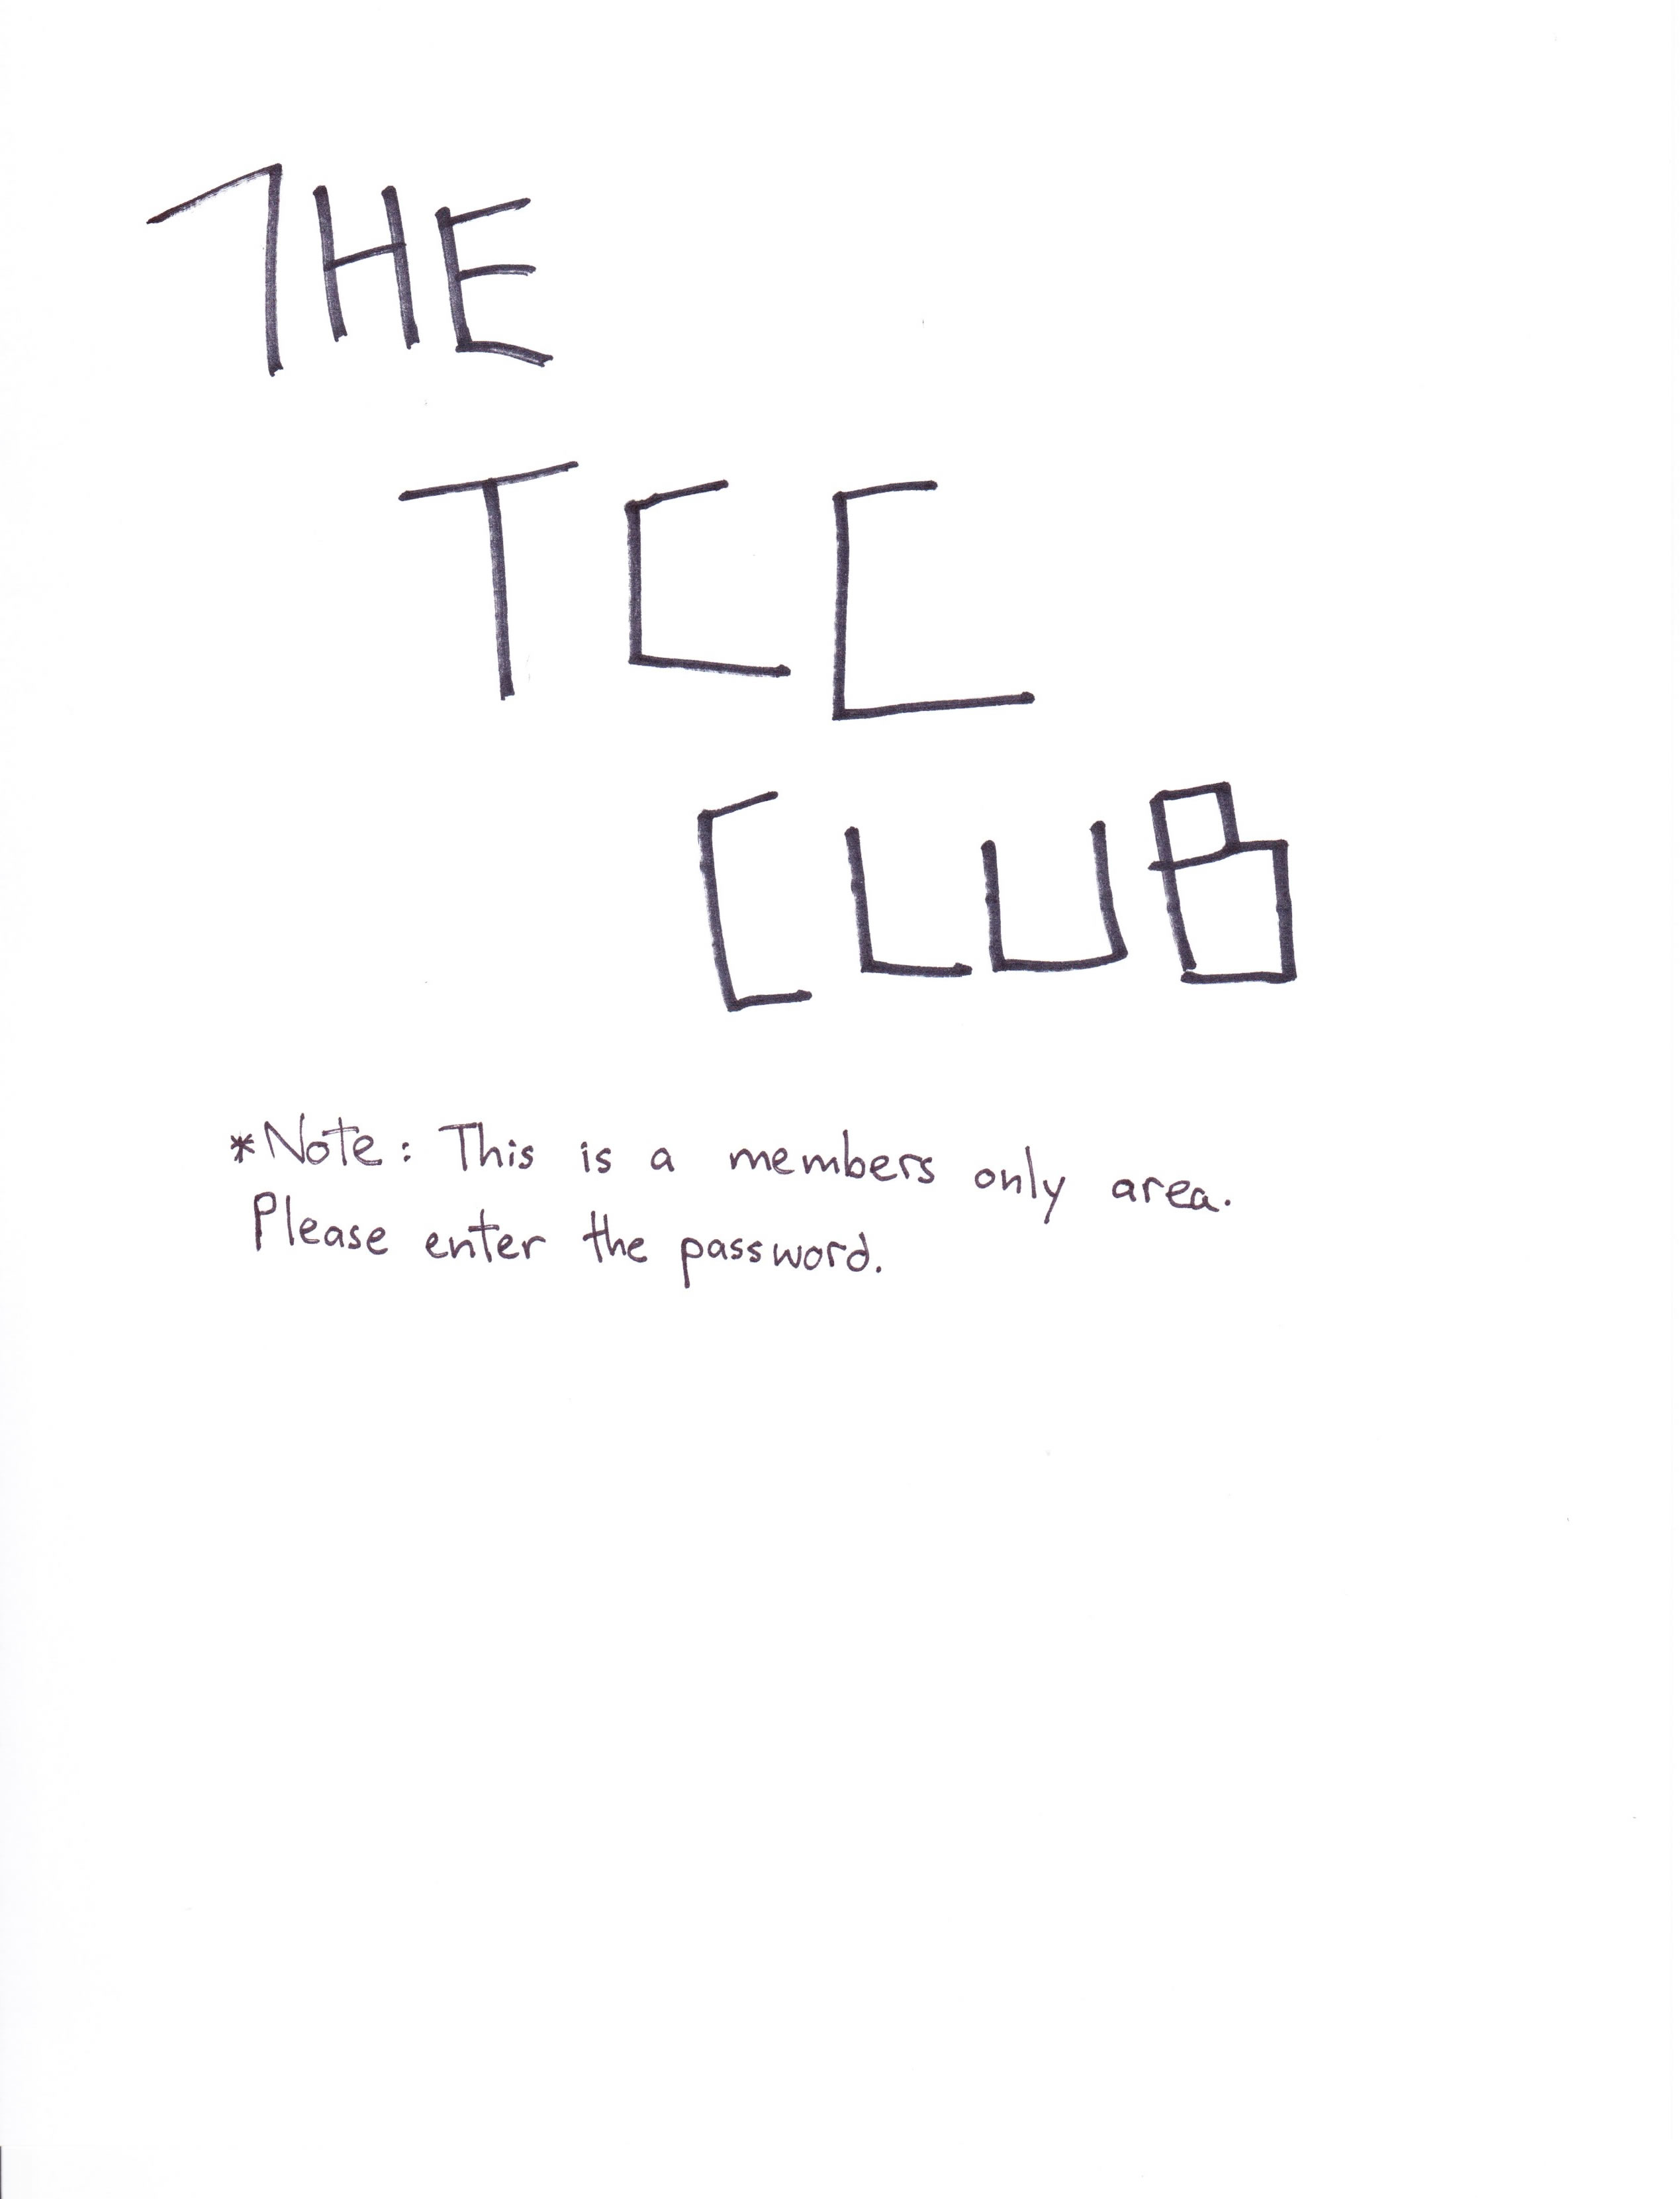 THE
TCC
CLUB
*Note: This is a members only area.
Please enter the password.